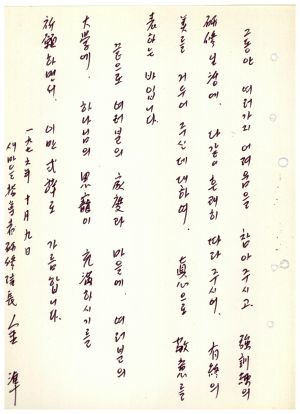 그동안 여러가지 어려움을 참아주시고. 強訓練의
研修 닷새에. 다같이 흔쾌히 따라 주시어. 有終의
美를 거두어 주신데 대하여. 眞心으로 敬意를
表하는 바입니다.
끝으로 여러분의 마을에. 여러분의
大營에. 하나님의 恩寵이 充滿하시기를
祈願하면서. 이만 式辭로 가름합니다.
一九七六年 十月 九日
새마을指導者研修院長 金 準